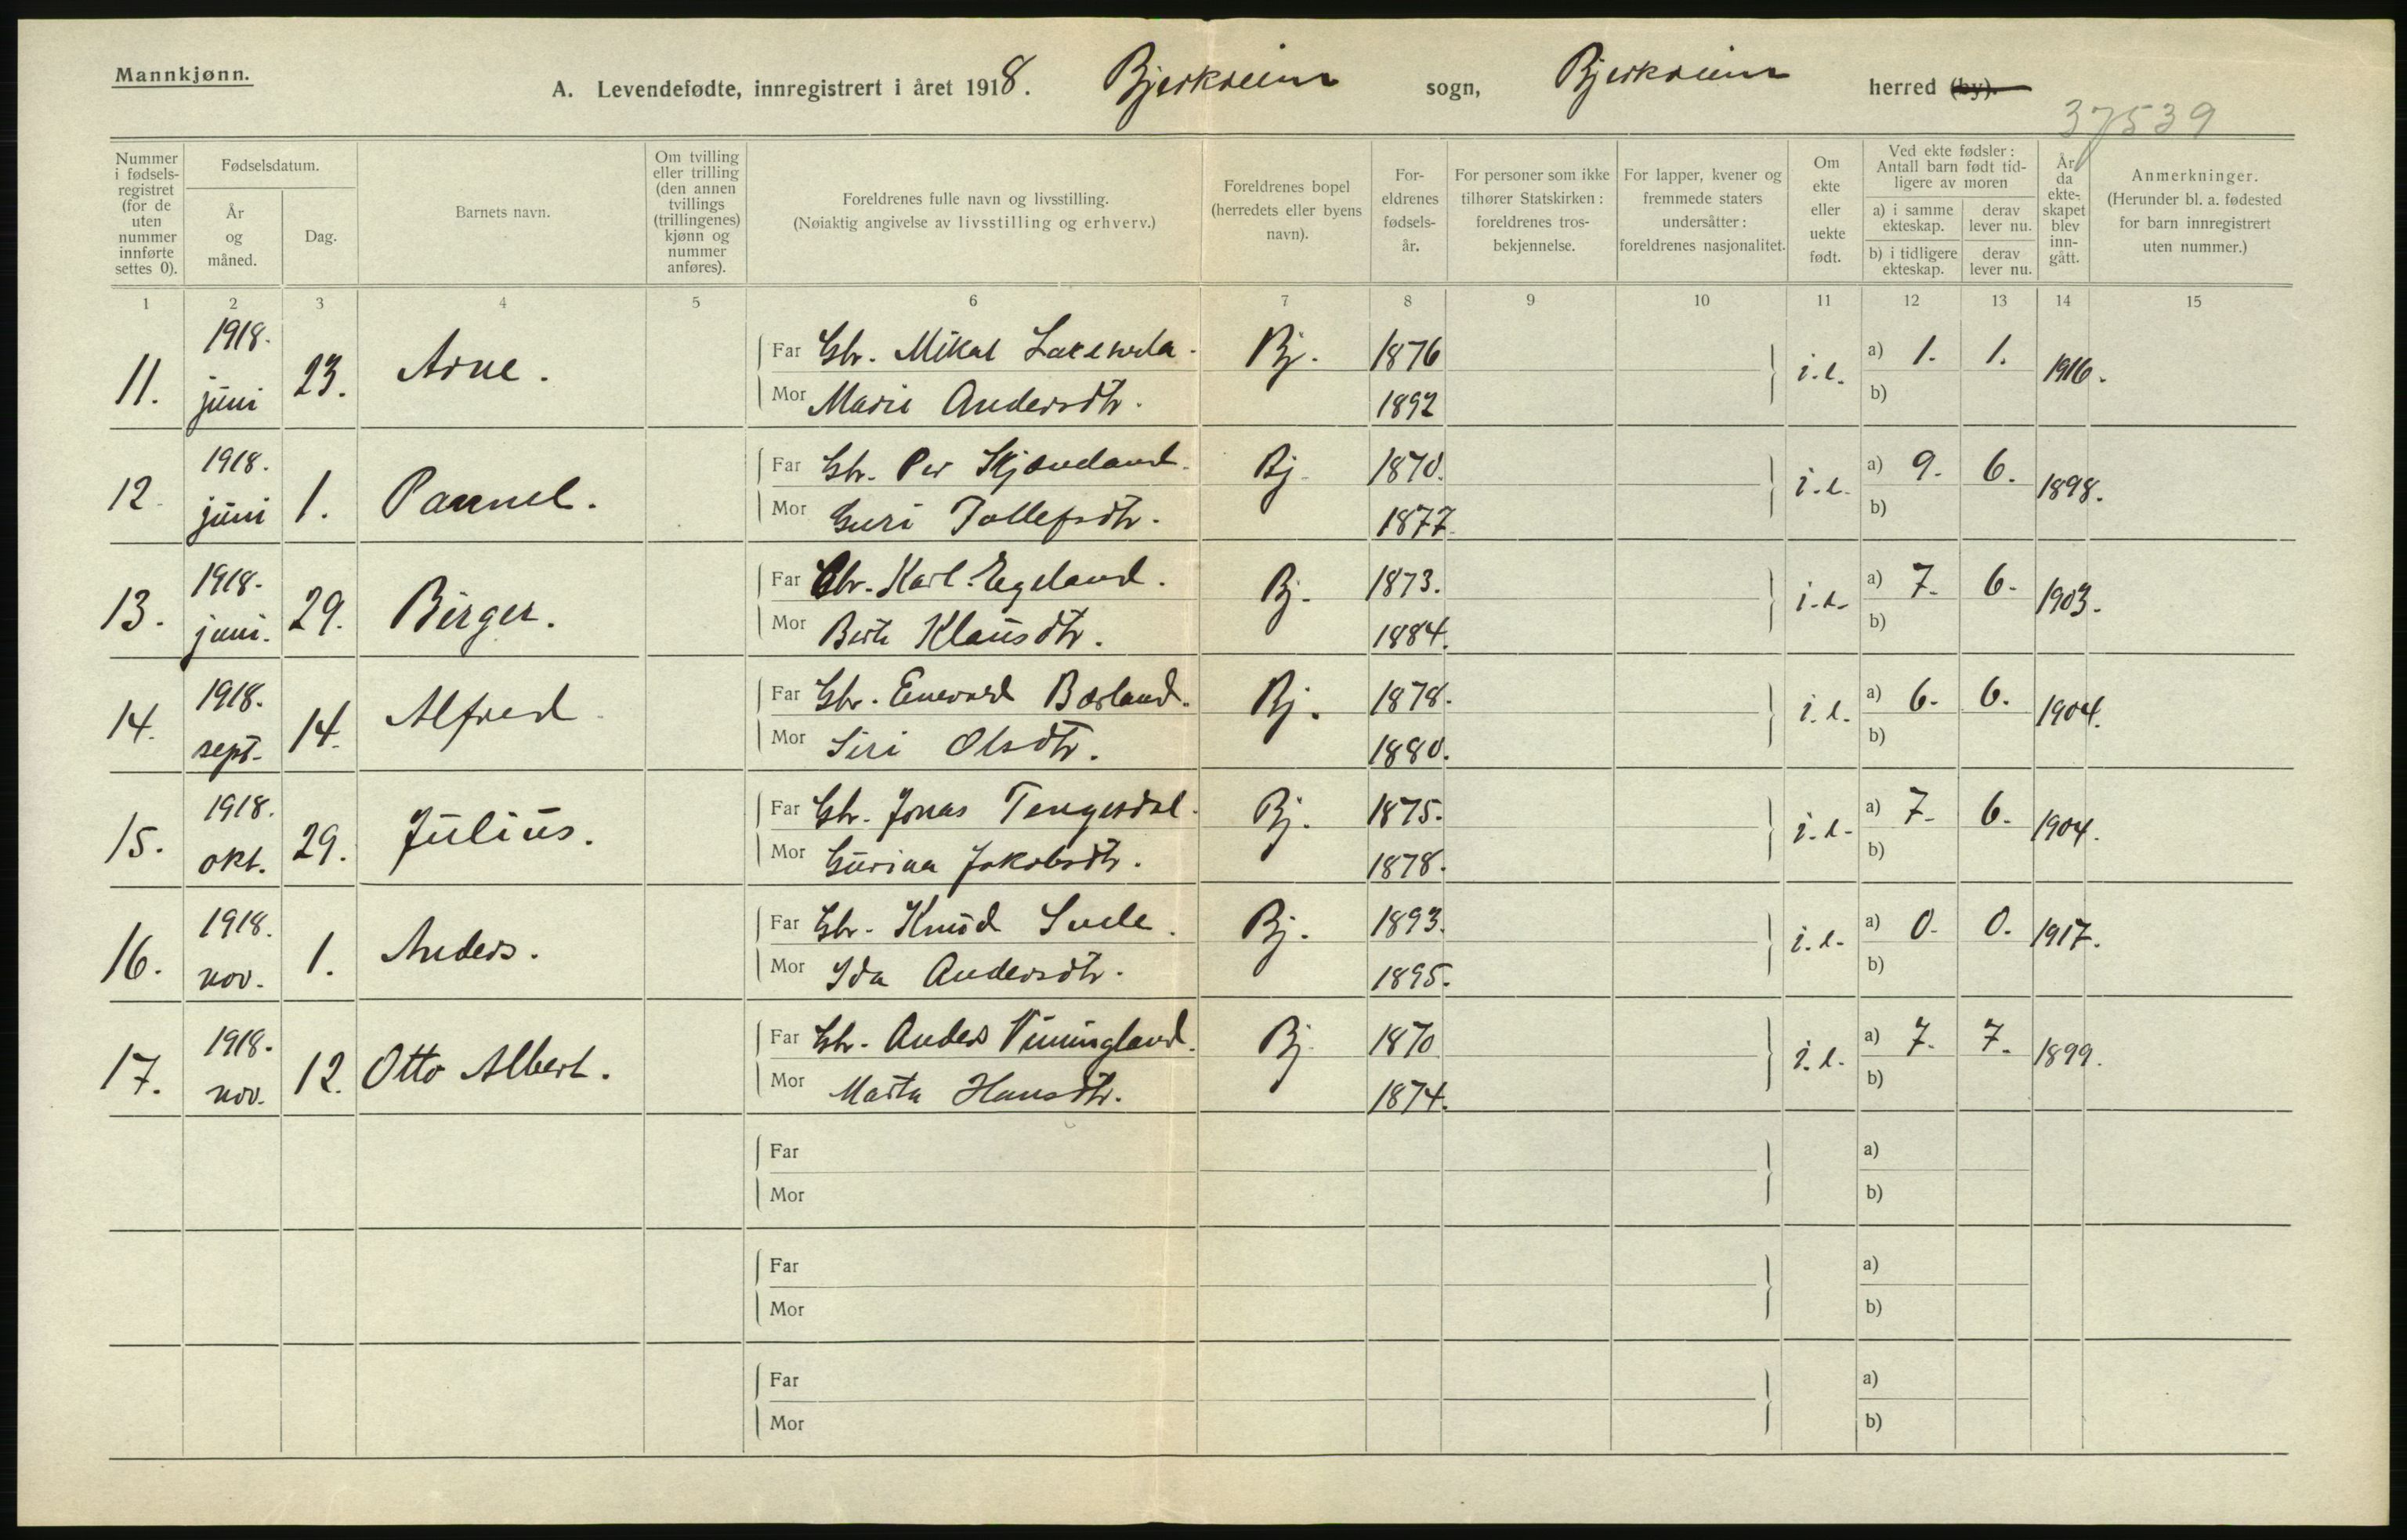 Mannkjønn.
A. Levendefødte, innregistrert i året 1918. Bjerkreim sogn, Bjerkreim herred (by).
37539
Nummer i fødselsregistret (for de uten nummer innførte settes 0).
Fødselsdatum.
År og måned.
Dag.
Barnets navn.
Om tvilling eller trilling (den annen tvillings (trillingenes) kjønn og nummer anføres).
Foreldrenes fulle navn og livsstilling.
(Nøiaktig angivelse av livsstilling og erhverv.)
Foreldrenes bopel (herredets eller byens navn).
Foreldrenes fødselsår.
For personer som ikke tilhører Statskirken: foreldrenes trosbekjennelse.
For lapper, kvener og fremmede staters undersåtter: foreldrenes nasjonalitet.
Om ekte eller uekte født.
Ved ekte fødsler: Antall barn født tidligere av moren
a) i samme ekteskap. derav lever nu.
b) i tidligere ekteskap. derav lever nu.
År da ekteskapet blev inngått.
Anmerkninger.
(Herunder bl. a. fødested for barn innregistrert uten nummer.)
1 2 3 4 5 6 7 8 9 10 11 12 13 14 15
11. 1918. juni 23. Arne. Far Gbr. Mikal Bj. 1876 i.e. a) 1. 1. 1916.
Mor Marie Andersdtr. 1892 b)
12 1918. juni 1. Far Gbr. Per Skjæveland. Bj. 1870. i.e. a) 9. 6. 1898.
Mor Guri Tollefsdtr. 1877. b)
13. 1918. juni. 29. Birger. Far Gbr. Karl Egeland. Bj. 1873. i.e. a) 7. 6. 1903.
Mor Berte Klausdtr. 1884. b)
14. 1918. sept. 14. Alfred Far Gbr. Enevald Børland. Bj. 1878. i.e. a) 6. 6. 1904.
Mor Siri Olsdtr. 1880. b)
15. 1918. okt. 29. Julius. Far Gbr. Jonas Tengesdal. Bj. 1875. i.e. a) 7. 6. 1904.
Mor Gurina Jakobsdtr. 1878. b)
16. 1918. nov. 1. Anders. Far Gbr. Knud Svele. Bj. 1893. i.e. a) 0. 0. 1917.
Mor Ida Andersdtr. 1895. b)
17. 1918. nov. 12. Otto Albert. Far Gbr. Anders Vinningland. Bj. 1870 i.e. a) 7. 7. 1899.
Mor Marta Hansdtr. 1874. b)
Far a)
Mor b)
Far a)
Mor b)
Far a)
Mor b)